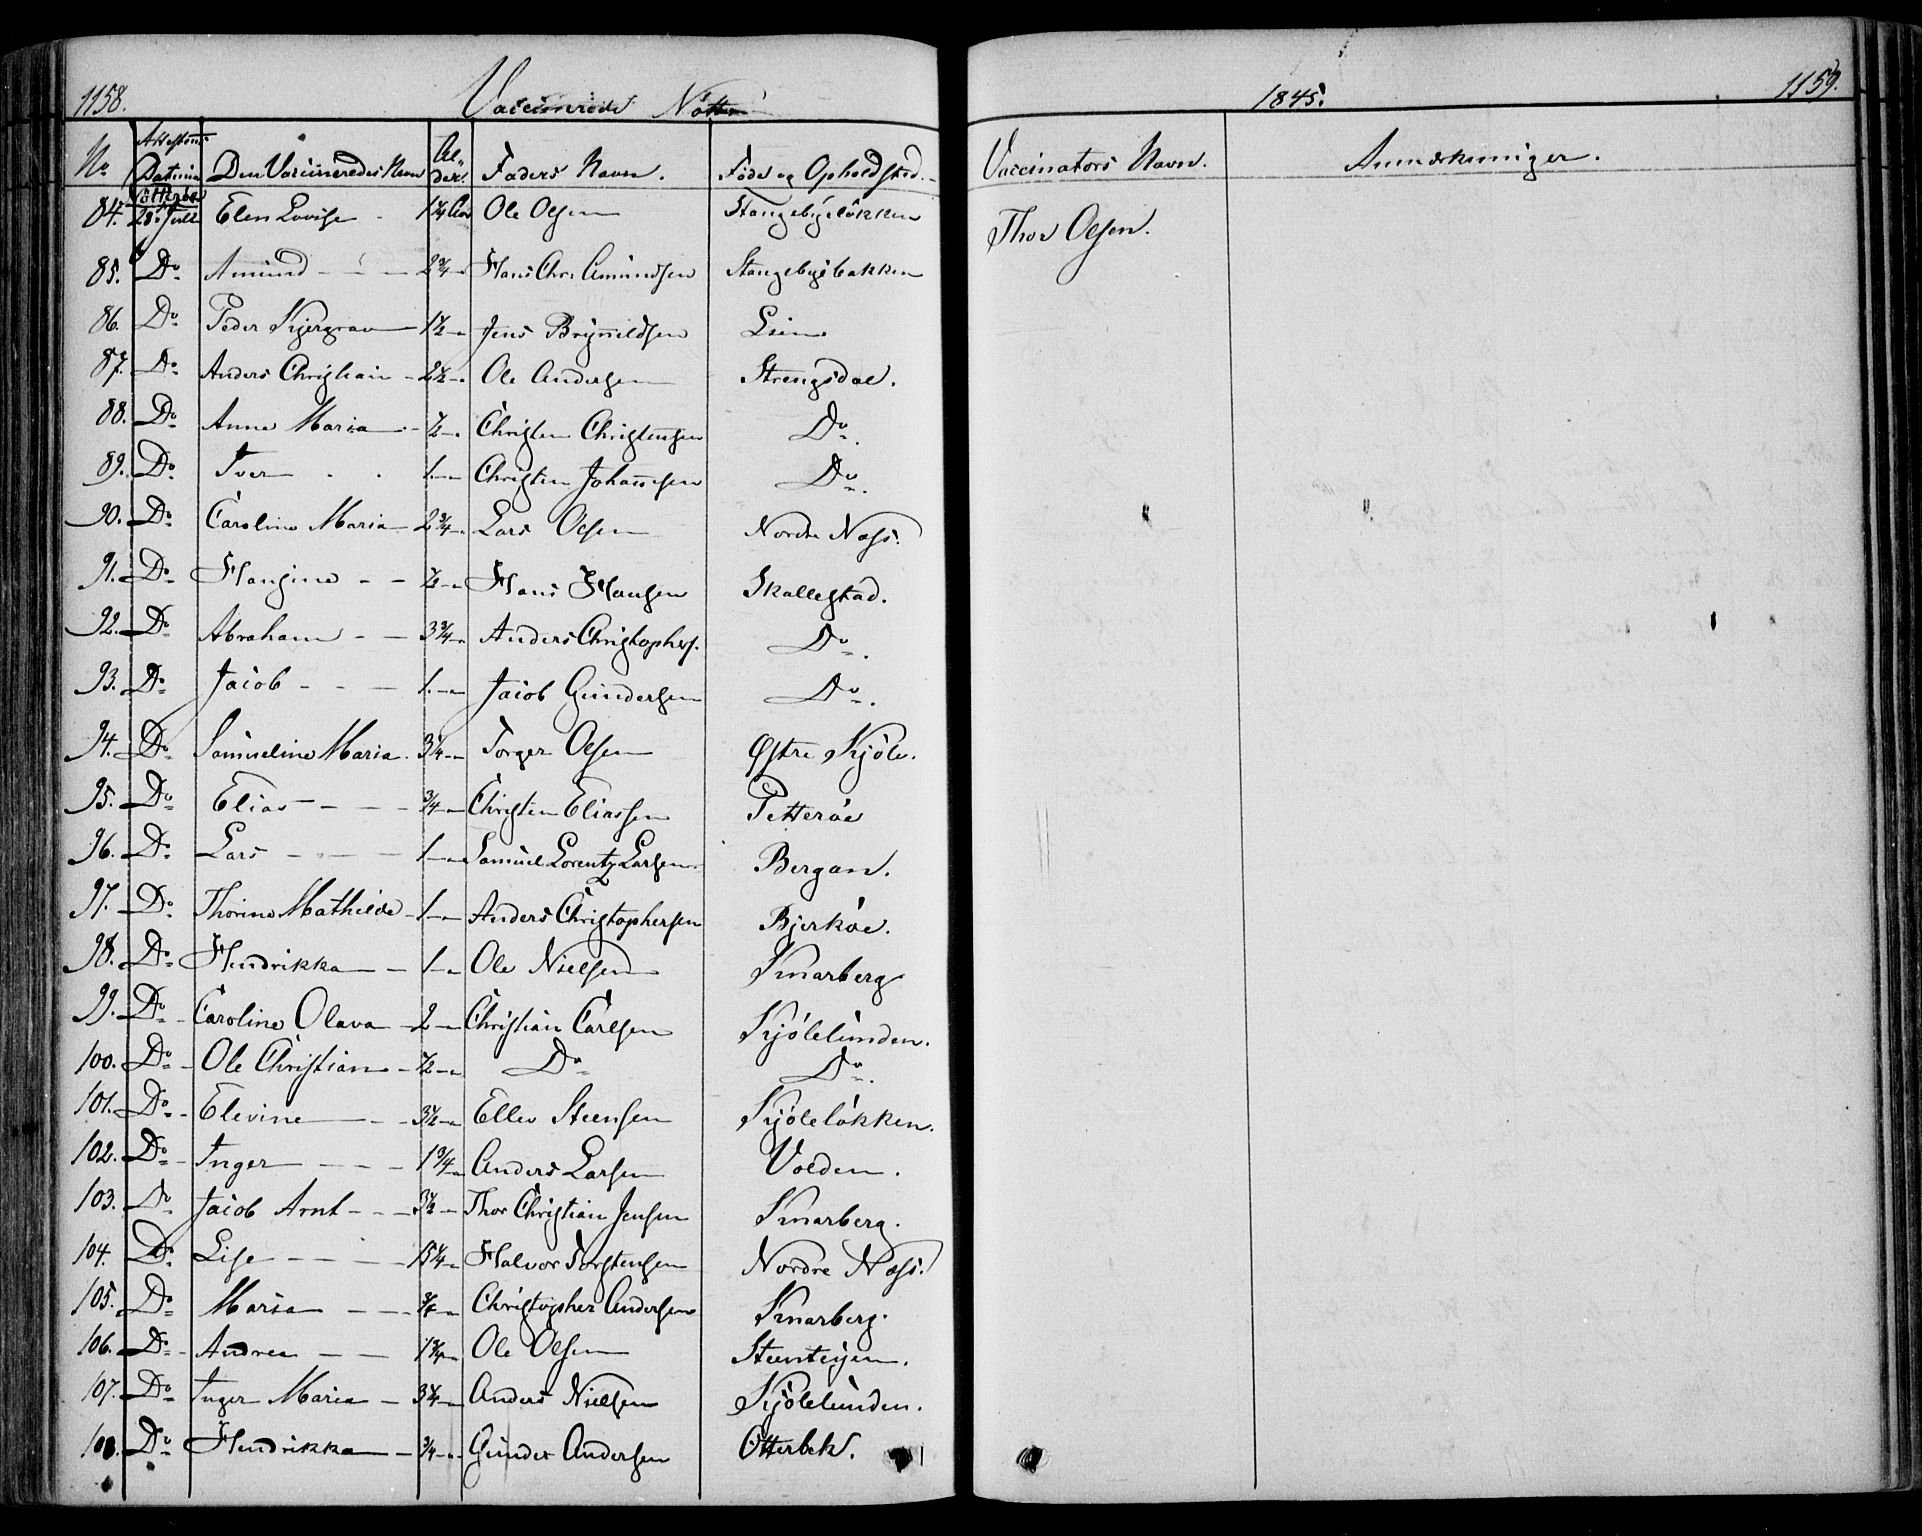 1158. Vaccinerede Nøtterø 1845. 1159.
No Attestens Datum Den Vaccineredes Navn Alder. Faders Navn. Føde og Opholdsted. Vaccinators Navn. Anmærkninger.
84. 28 Juli Elen Lovise 1 1/4 Aar Ole Olsen Stangebyeløkken Thor Olsen.
85. Do Amund 2 3/4 Hans Chr. Amundsen Stangebyebakken
86. Do Peder Kjergrav 1 1/2 Jens Brynnildsen
87. Do Anders Christian 2 1/2 Ole Andersen Strengsdal.
88. Do Anne Maria 1/2 Christen Christensen Do.
89. Do Iver 1 Christen Johannesen Do.
90. Do Caroline Maria 2 3/4 Lars Olsen Nordre Næss.
91. Do Hansine 1/2 Hans Hansen Skallestad.
92. Do Abraham 3 3/4 Anders Christophers. Do.
93. Do Jacob 1 Jacob Gundersen Do.
94. Do Samueline Maria. 3 1/4 Torger Olsen Østre Kjøle.
95. Do Elias 3/4 Christen Eliassen Petterøe
96. Do Lars 1 Samuel Lorentz Larsen Bergan.
97. Do Thorine Mathilde 1 Anders Christophersen Bjerkøe.
98. Do Hendrikka 1 Ole Nielsen Knarberg
99. Do Caroline Olava 2 Christian Carlsen Kjølelunden.
100. Do Ole Christian 1/2 Do Do.
101. Do Elevine 3 1/2 Ellev Steensen Kjøleløkken.
102. Do Inger 1 3/4 Anders Larsen Volden.
103. Do Jacob Arnt 3 1/2 Thor Christian Jensen Knarberg.
104. Do Lise 15 1/4 Halvor Torstensen Nordre Næss.
105. Do Maria 3/4 Christopher Andersen Knarberg.
106. Do Andrea 1 3/4 Ole Olsen
107. Do Inger Maria 3 1/4 Anders Nielsen Kjølelunden.
108. Do Hendrikka 3/4 Gunder Andersen Otterbek.